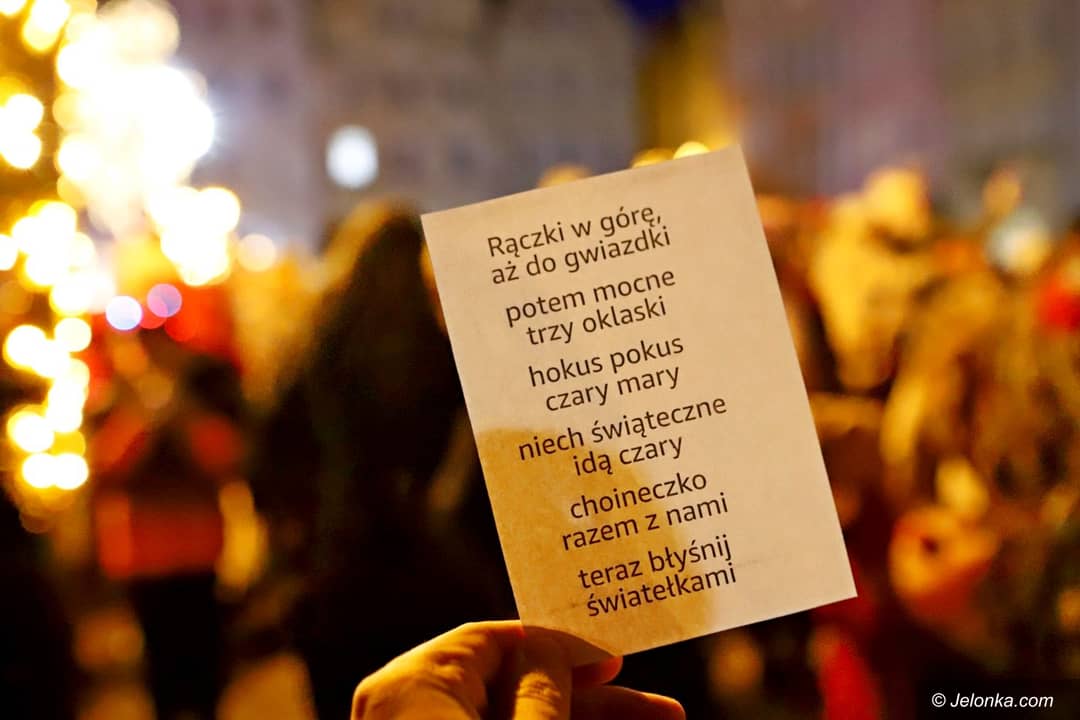 Rączki w górę,
aż do gwiazdki
potem mocne
trzy oklaski
hokus pokus
czary mary
niech świąteczne
idą czary
choineczko
razem z nami
teraz błyśnij
światełkami
© Jelonka.com